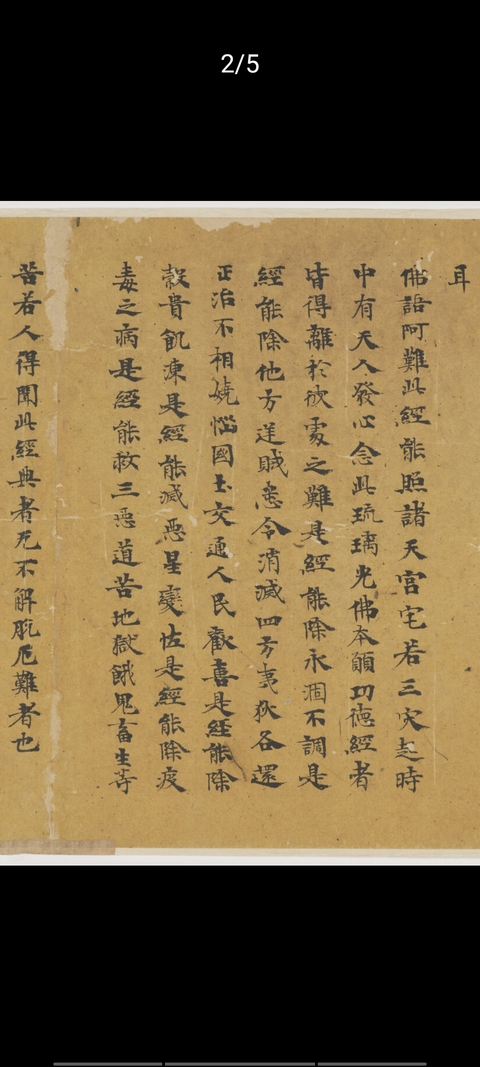 2/5
耳
佛語阿難此經能照諸天宮宅若三灾起時
中有天人發心念此琉璃光佛本願功德經者
皆得離於彼處之難是經能除水涸不調是
經能除他方逆賊悉令消滅四方夷狄各還
正治不相嬈惱國土交通人民歡喜是經能除
穀貴飢凍是經能滅惡星變恠是經能除疫
毒之病是經能救三惡道苦地獄餓鬼畜生等
苦若人得聞此經典者无不解脫厄難者也